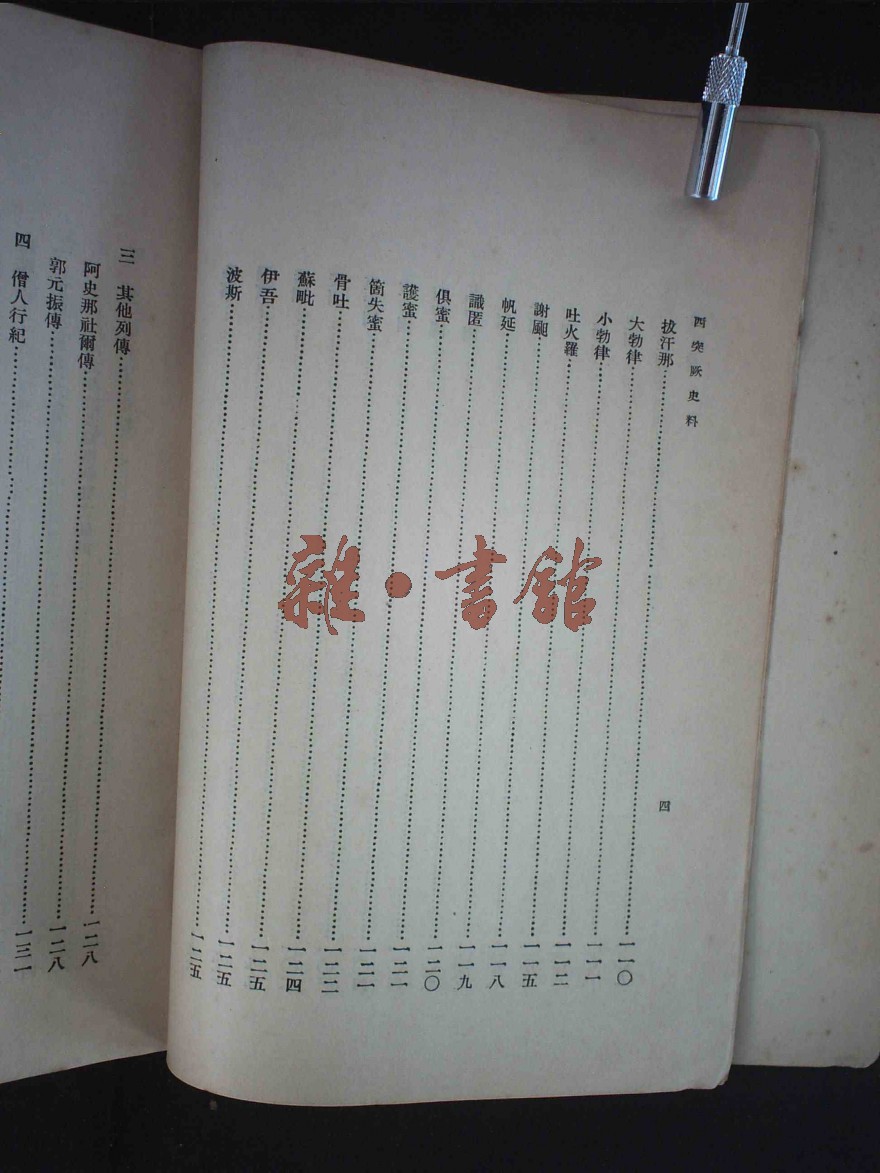 西突厥史料
四
拔汗那……一一〇
大勃律……一一一
小勃律……一一二
吐火羅……一一五
謝䫻……一一八
帆延……一一九
識匿……一二〇
俱蜜……一二一
護蜜……一二一
箇失蜜……一二二
骨吐……一二四
蘇毗……一二五
伊吾……一二五
波斯……一二五
三 其他列傳……一二八
阿史那社爾傳……一二八
郭元振傳……一三一
四 僧人行紀……
雜·書館